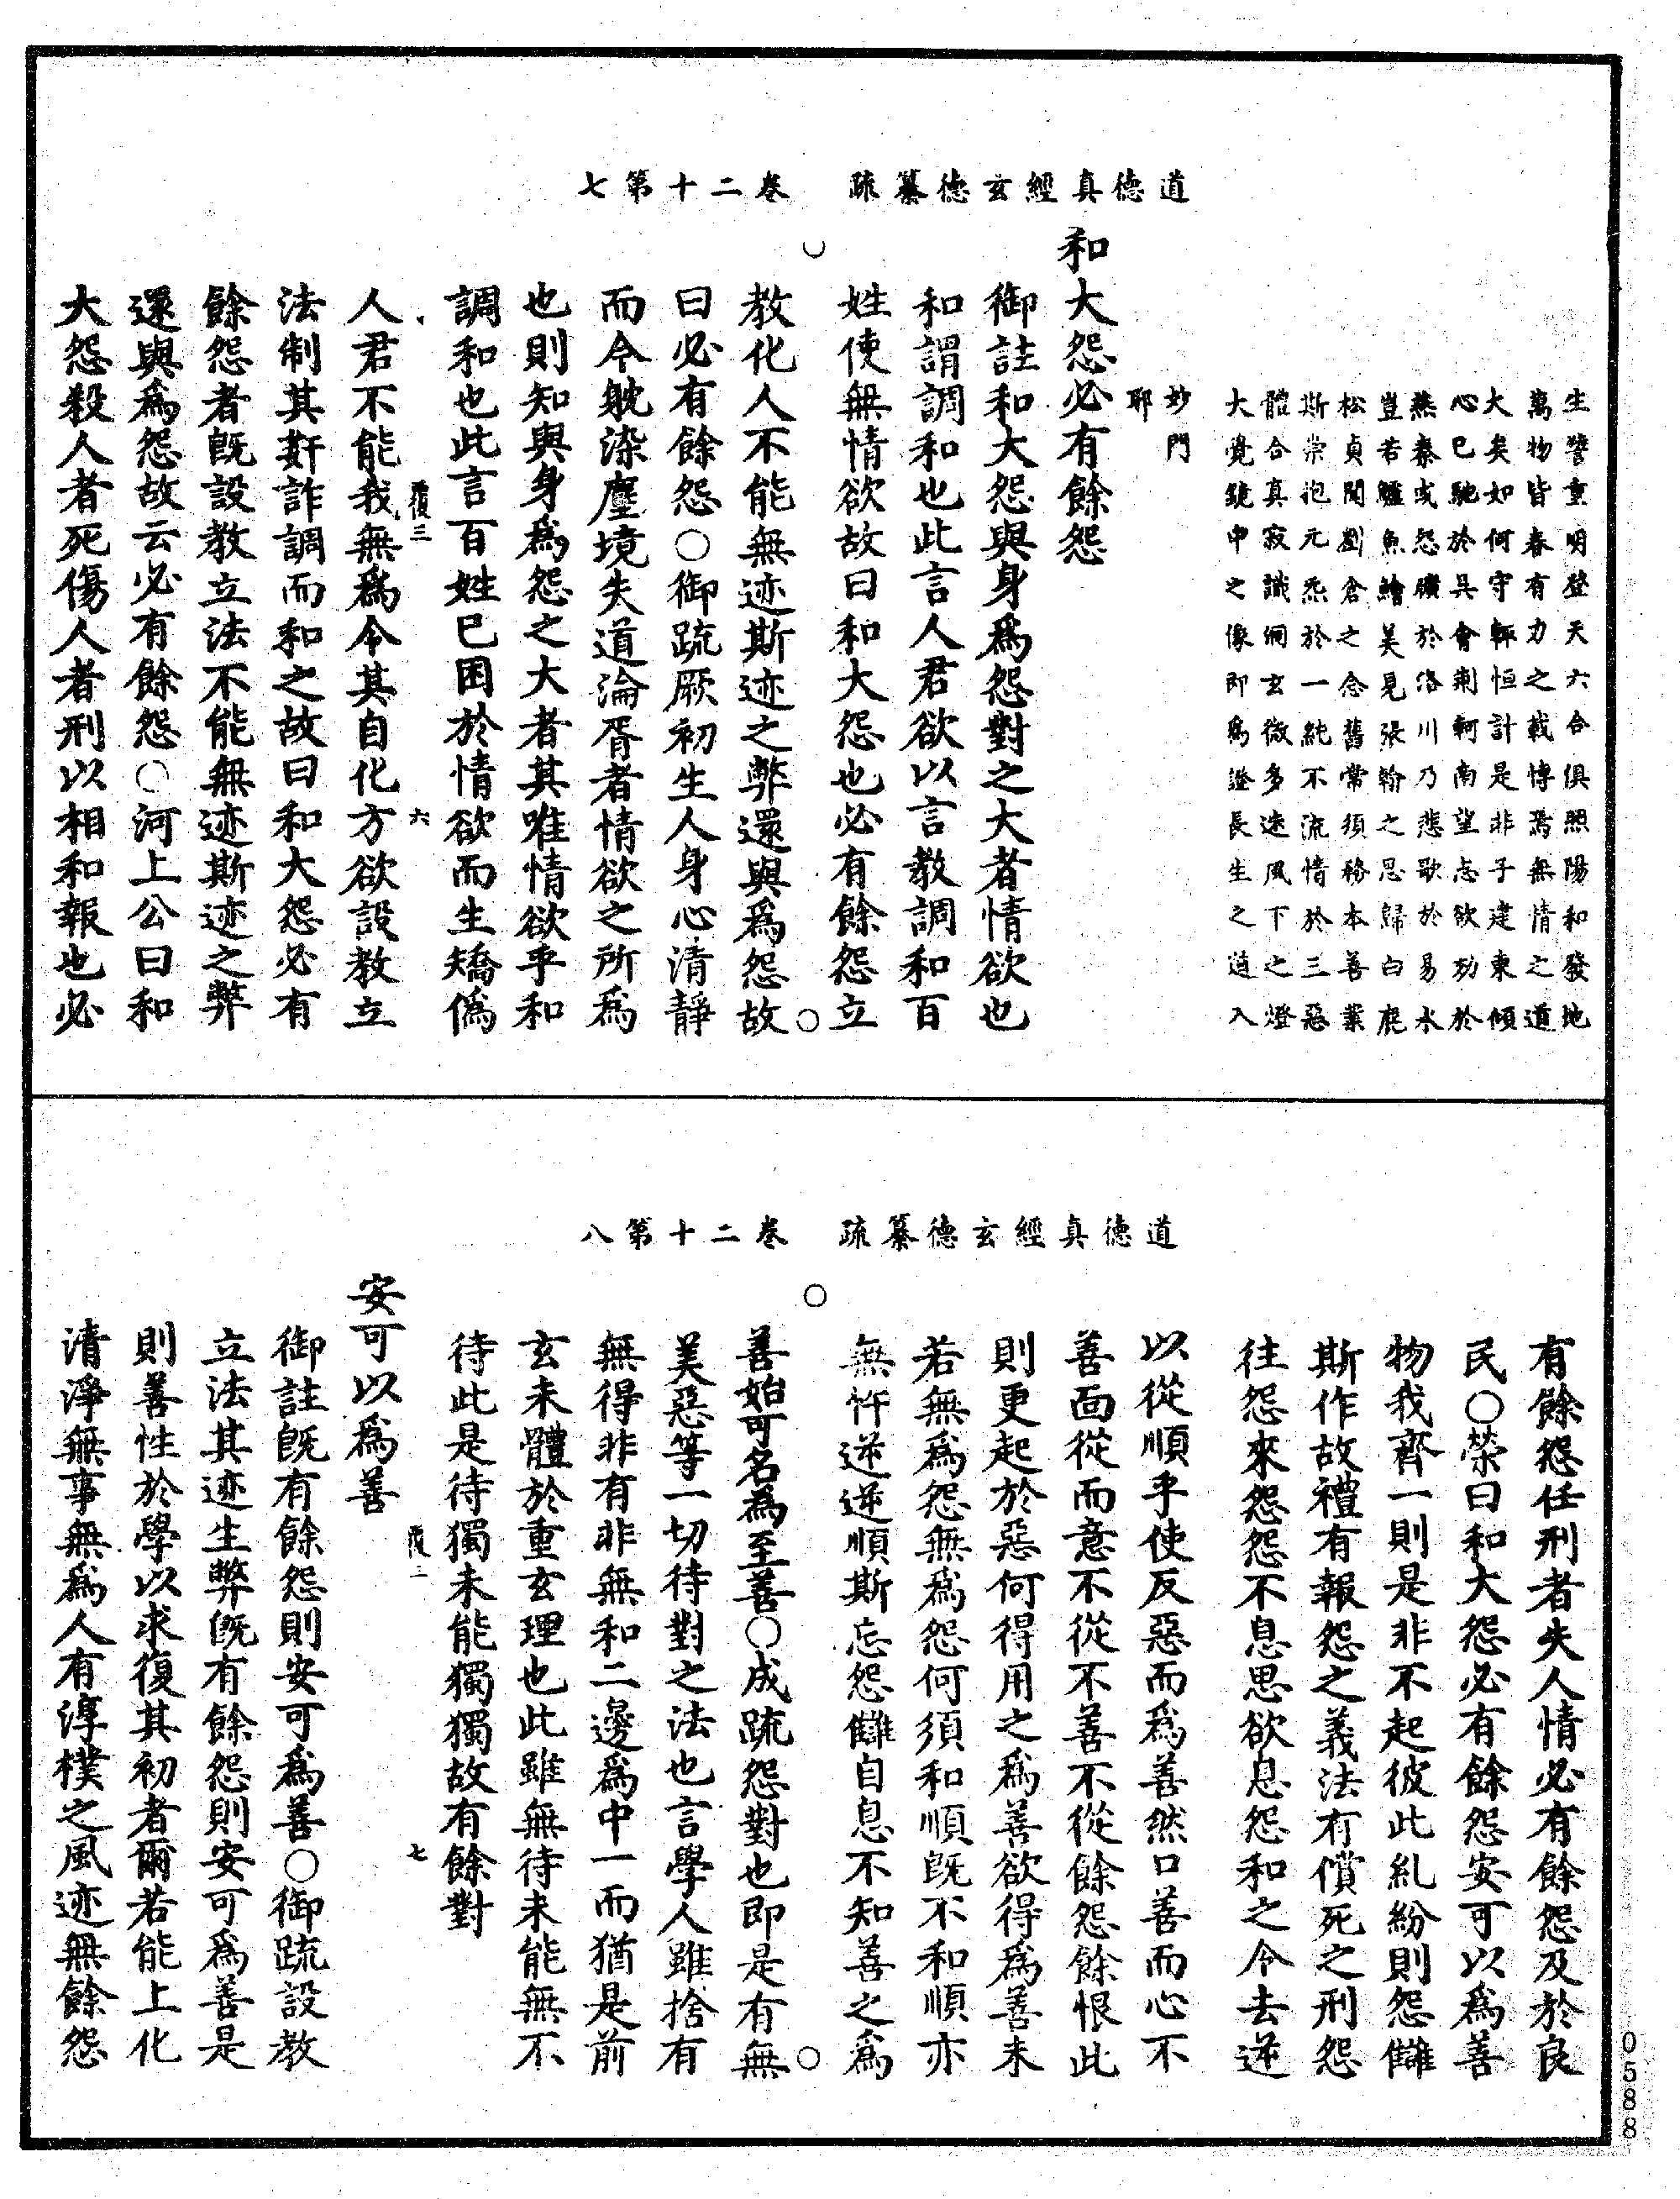 道德真經玄德纂疏　卷二十第七
生譬重明登天六合俱照陽和發地
萬物皆春有力之載博焉無情之道
大矣如何守輕恒計是非子建東傾
心已馳於具會荆軻南望志欲劝於
燕秦或怨曠於洛川乃悲歌於易水
豈若鱸魚鱠美見張翰之思歸白鹿
松貞聞劉倉之念舊常須務本善業
斯崇抱元炁於一純不流情於三惡
體合真寂識洞玄微多速風下之燈
大覺鏡中之像即爲證長生之道入
妙門
耶
和大怨必有餘怨
御註和大怨與身爲怨對之大者情欲也
和謂調和也此言人君欲以言教調和百
姓使無情欲故曰和大怨也必有餘怨立
教化人不能無迹斯迹之弊還與爲怨故
曰必有餘怨○御疏厥初生人身心清靜
而今躭染塵境失道淪胥者情欲之所爲
也則知與身爲怨之大者其唯情欲乎和
調和也此言百姓已困於情欲而生矯僞
覆三　六
人君不能我無爲令其自化方欲設教立
法制其姧詐調而和之故曰和大怨必有
餘怨者旣設教立法不能無迹斯迹之弊
還與爲怨故云必有餘怨○河上公曰和
大怨殺人者死傷人者刑以相和報也必
道德真經玄德纂疏　卷二十第八
有餘怨任刑者失人情必有餘怨及於良
民○榮曰和大怨必有餘怨安可以爲善
物我齊一則是非不起彼此糺紛則怨讎
斯作故禮有報怨之義法有償死之刑怨
往怨來怨怨不息思欲息怨和之令去逆
以從順乎使反惡而爲善然口善而心不
善面從而意不從不善不從餘怨餘恨此
則更起於惡何得用之爲善欲得爲善未
若無爲怨無爲怨何須和順旣不和順亦
無忤逆逆順斯忘怨讎自息不知善之爲
善始可名為至善○成疏怨對也即是有無
美惡等一切待對之法也言學人雖捨有
無得非有非無和二邊爲中一而猶是前
玄未體於重玄理也此雖無待未能無不
待此是待獨未能獨獨故有餘對
覆三　七
安可以爲善
御註旣有餘怨則安可爲善○御疏設教
立法其迹生弊旣有餘怨則安可爲善是
則善性於學以求復其初者爾若能上化
清淨無事無爲人有淳樸之風迹無餘怨
0588